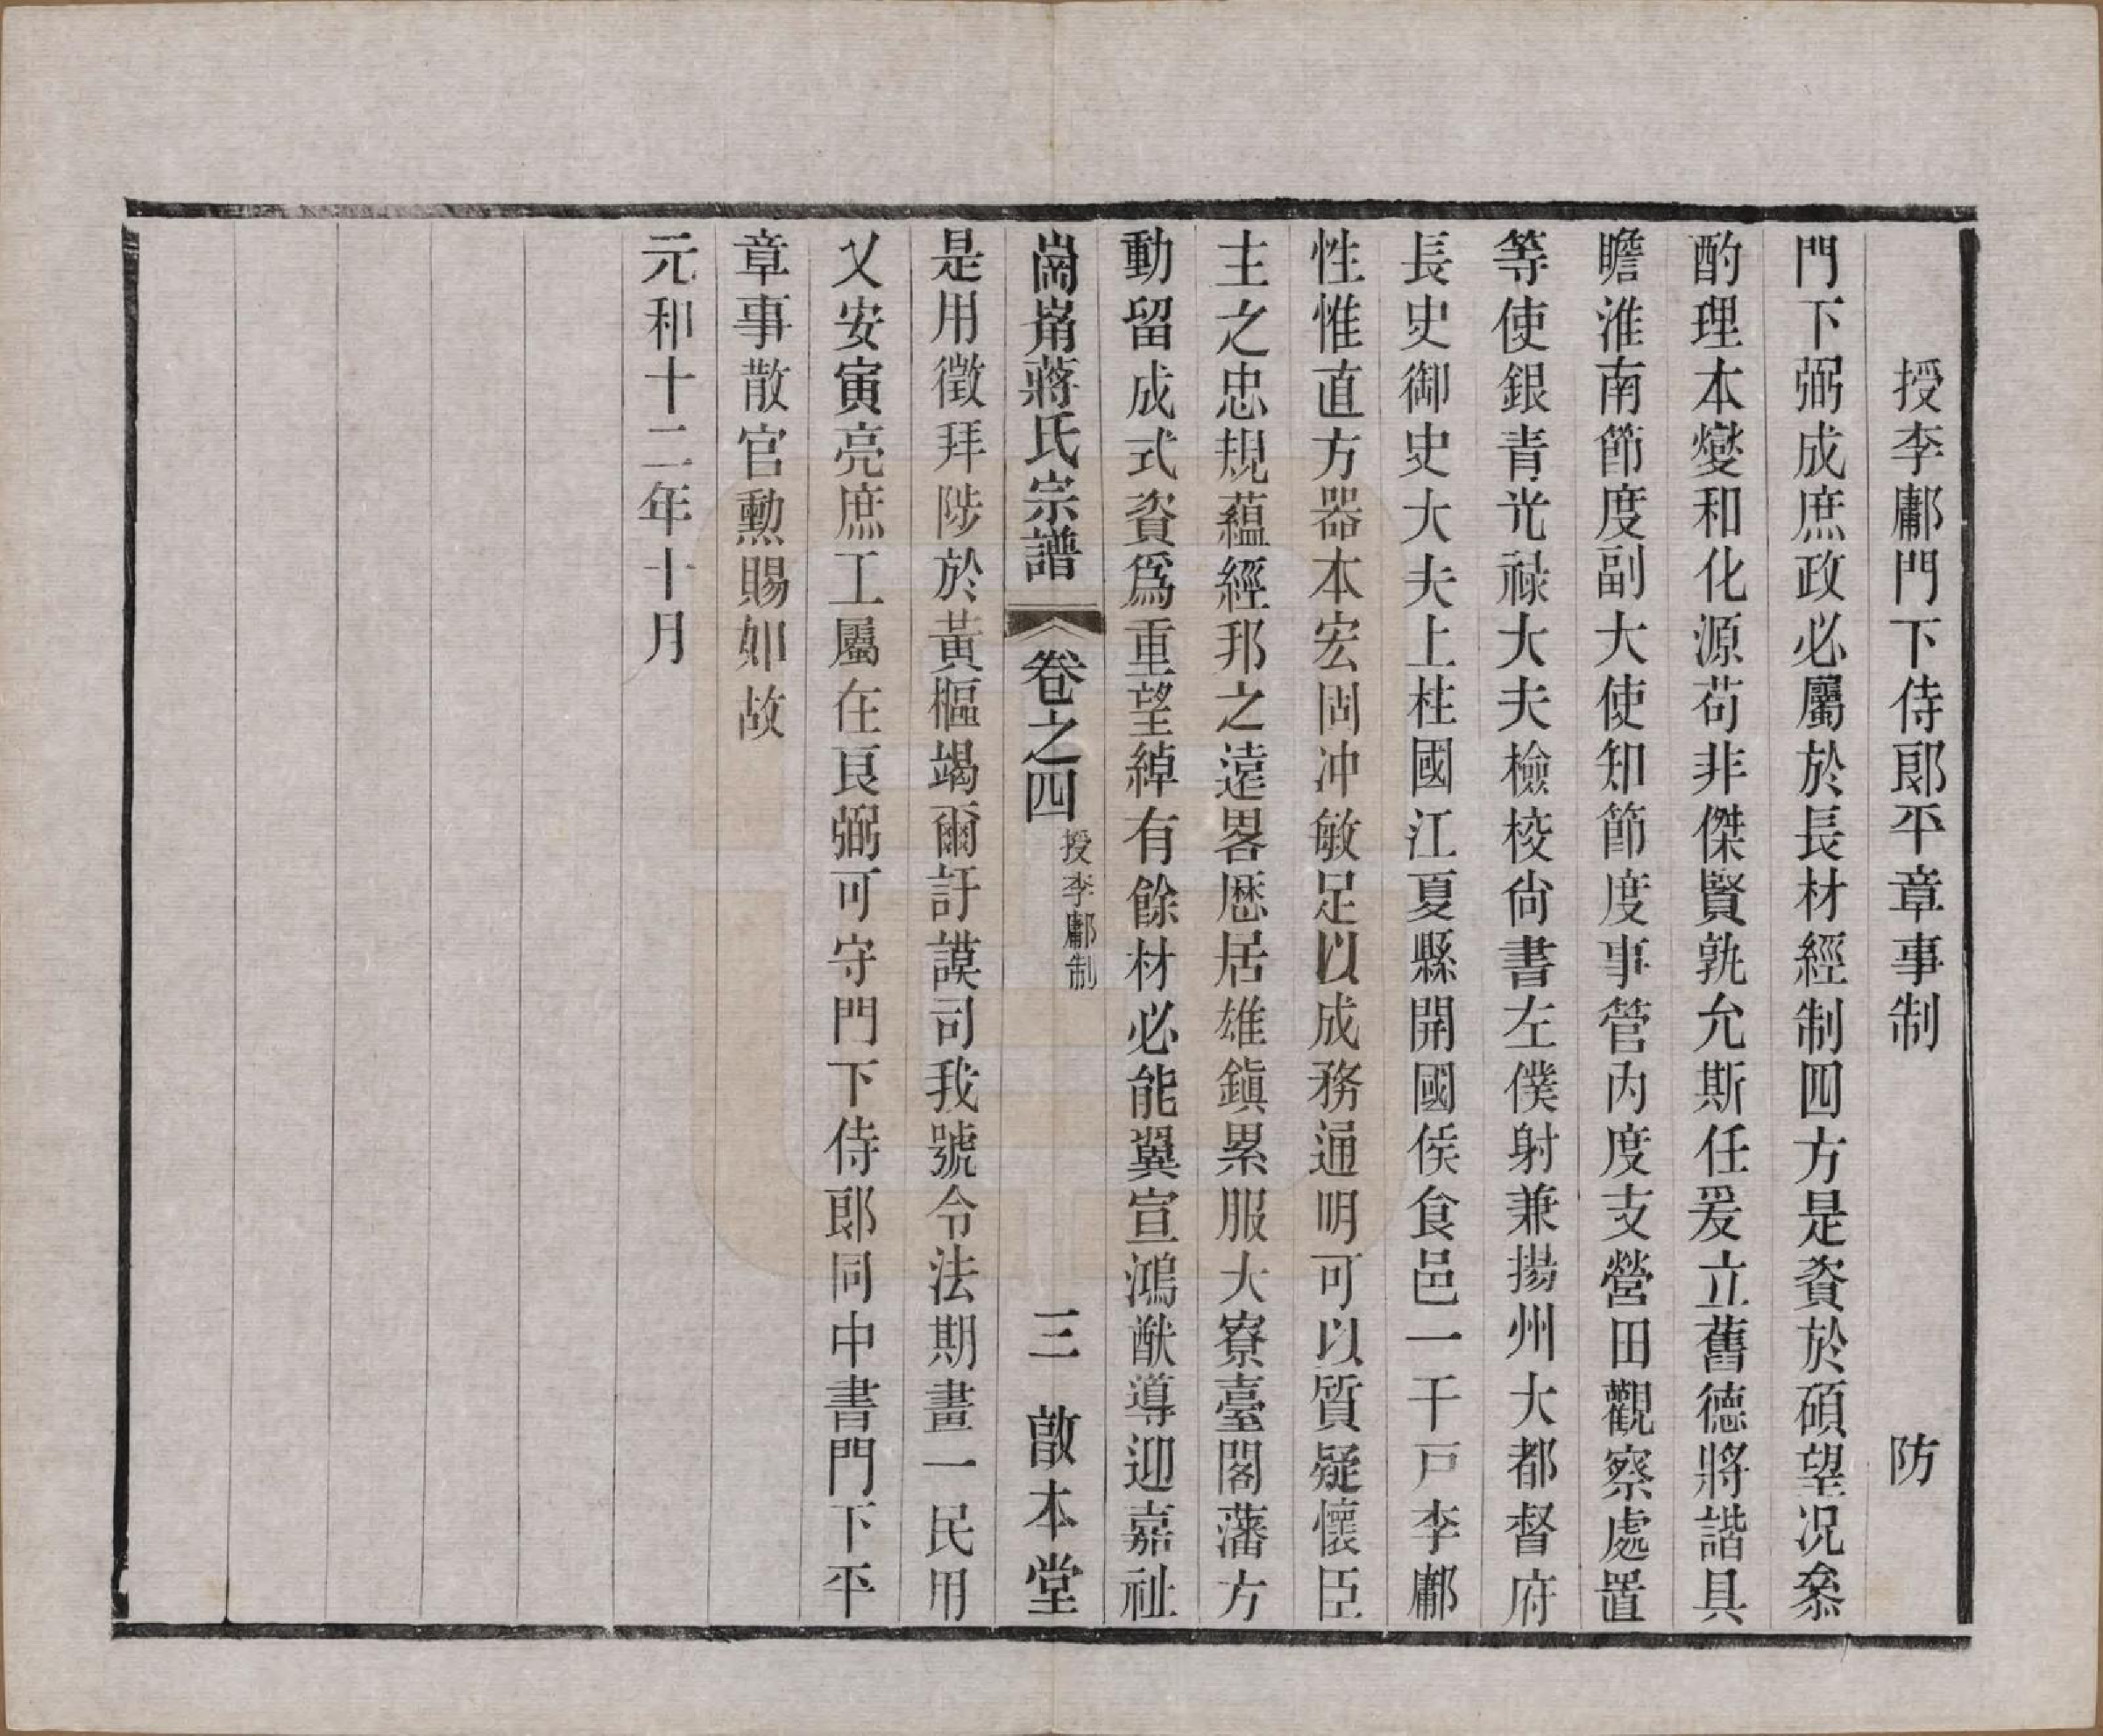 授李鄘門下侍郎平章事制 防
門下弼成庶政必屬於長材經制四方是資於碩望况叅
酌理本燮和化源苟非傑賢孰允斯任爰立舊德將諧具
瞻淮南節度副大使知節度事管内度支營田觀察處置
等使銀青光禄大夫檢校尙書左僕射兼揚州大都督府
長史御史大夫上柱國江夏縣開國侯食邑一千戸李鄘
性惟直方器本宏固冲敏足以成務通明可以質疑懷臣
主之忠規蘊經邦之遠畧歷居雄鎭累服大寮臺閣藩方
動留成式資爲重望綽有餘材必能翼宣鴻猷導迎嘉祉
崗嵛蔣氏宗譜 卷之四 授李鄘制 三 啟本堂
是用徵拜陟於黃樞竭爾訏謨司我號令法期畫一民用
乂安寅亮庶工屬在良弼可守門下侍郎同中書門下平
章事散官勲賜如故
元和十二年十月